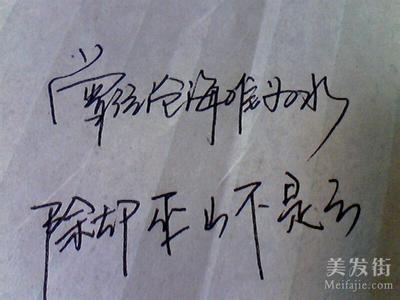 曾经沧海难为水
除却巫山不是云
美发街
Meifajie.com